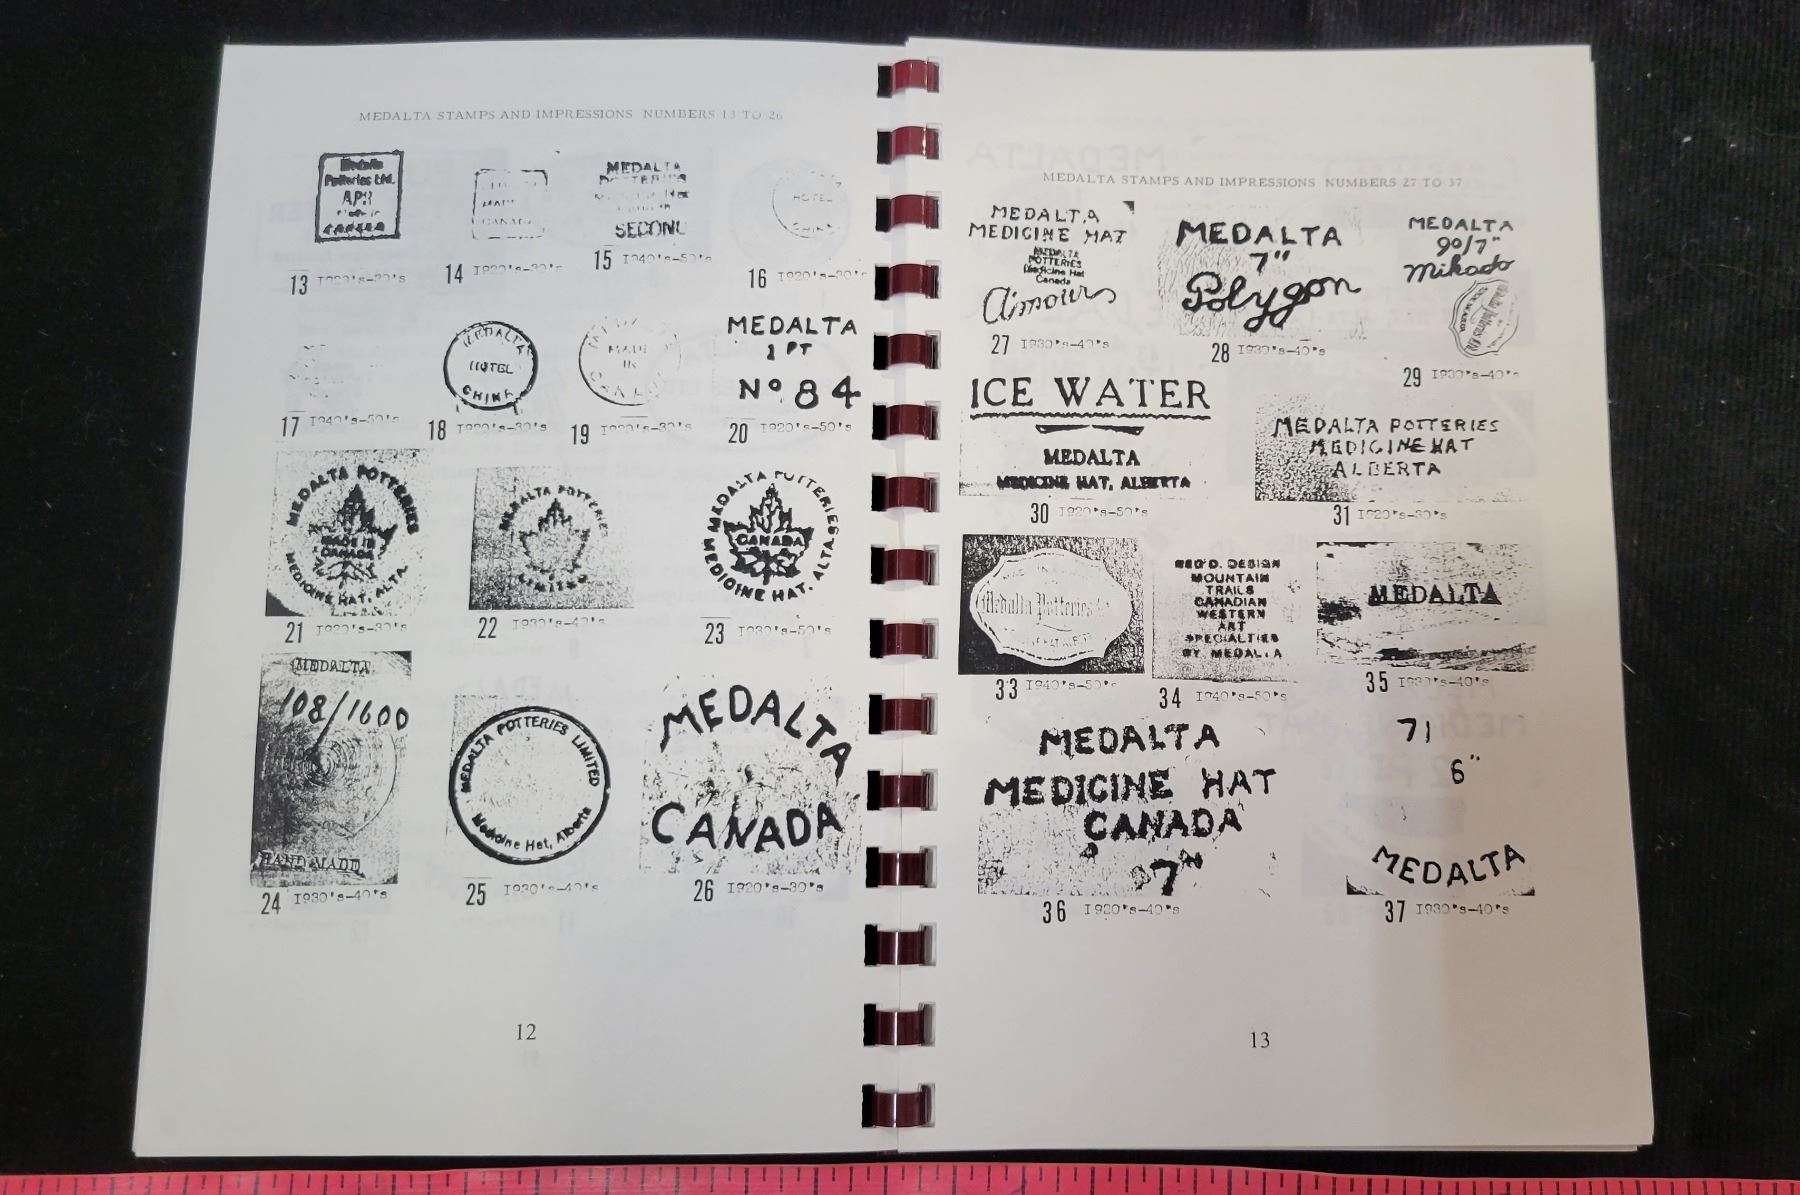 MEDALTA STAMPS AND IMPRESSIONS NUMBERS 13 TO 26
Medalta
Potteries Ltd.
APR
CANADA
13 1920's-30's
MADE
CANADA
14 1920's-30's
MEDALTA
POTTERIES
SECOND
15 1940's-50's
HOTEL
CHINA
16 1920's-30's
17 1940's-50's
MEDALTA
HOTEL
CHINA
18 1920's-30's
MADE
IN
19 1920's-30's
MEDALTA
1 PT
Nº 84
20 1920's-50's
MEDALTA POTTERIES
MADE IN
CANADA
MEDICINE HAT, ALTA.
21 1920's-30's
MEDALTA POTTERIES
LIMITED
22 1930's-40's
MEDALTA POTTERIES
CANADA
MEDICINE HAT, ALTA.
23 1930's-50's
MEDALTA
108/1600
HAND MADE
24 1930's-40's
MEDALTA POTTERIES LIMITED
Medicine Hat, Alberta
25 1930's-40's
MEDALTA
CANADA
26 1920's-30's
12
MEDALTA STAMPS AND IMPRESSIONS NUMBERS 27 TO 37
MEDALTA
MEDICINE HAT
MEDALTA
POTTERIES
Medicine Hat
Canada
27 1930's-40's
MEDALTA
7"
Polygon
28 1930's-40's
MEDALTA
90/7"
Mikado
29 1930's-40's
ICE WATER
MEDALTA
MEDICINE HAT, ALBERTA
30 1920's-50's
MEDALTA POTTERIES
MEDICINE HAT
ALBERTA
31 1920's-30's
Medalta Potteries
33 1940's-50's
REG'D. DESIGN
MOUNTAIN
TRAILS
CANADIAN
WESTERN
ART
SPECIALTIES
BY MEDALTA
34 1940's-50's
MEDALTA
35 1930's-40's
MEDALTA
MEDICINE HAT
CANADA
7"
36 1920's-40's
71
6"
MEDALTA
37 1930's-40's
13